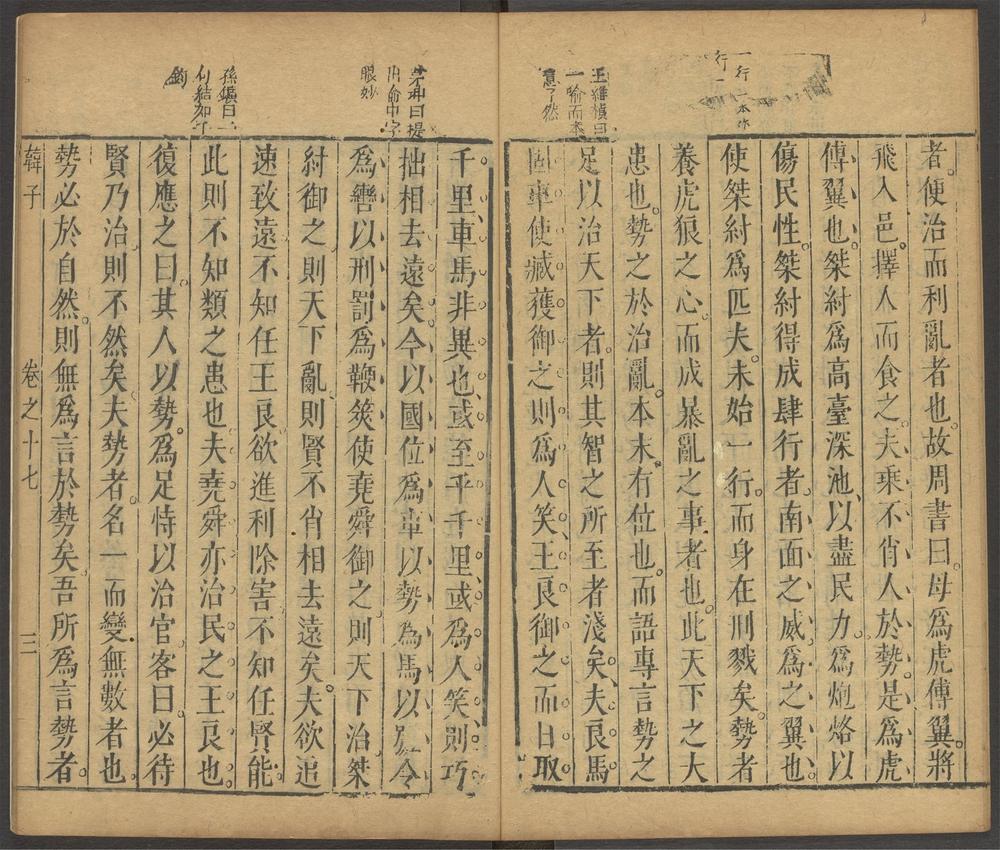 者便治而利亂者也故周書曰毋爲虎傅翼將
飛入邑擇人而食之夫乘不肖人於勢是爲虎
傅翼也桀紂爲高臺深池以盡民力爲炮烙以
傷民性桀紂得成肆行者南面之威爲之翼也
使桀紂爲匹夫未始一行而身在刑戮矣勢者
養虎狼之心而成暴亂之事者也此天下之大
患也勢之於治亂本末有位也而語專言勢之
足以治天下者則其智之所至者淺矣夫良馬
固車使臧獲御之則爲人笑王良御之而日取
一行一本作
行一
王維楨曰
一喻而本
意了然
千里車馬非異也或至乎千里或爲人笑則巧
拙相去遠矣今以國位爲車以勢爲馬以號令
爲轡以刑罰爲鞭筴使堯舜御之則天下治桀
紂御之則天下亂則賢不肖相去遠矣夫欲追
速致遠不知任王良欲進利除害不知任賢能
此則不知類之患也夫堯舜亦治民之王良也
復應之曰其人以勢爲足恃以治官客曰必待
賢乃治則不然矣夫勢者名一而變無數者也
勢必於自然則無爲言於勢矣吾所爲言勢者
茅坤曰提
出命中字
眼妙
孫鑛曰一
句結如丁
鉤
韓子
卷之十七
三